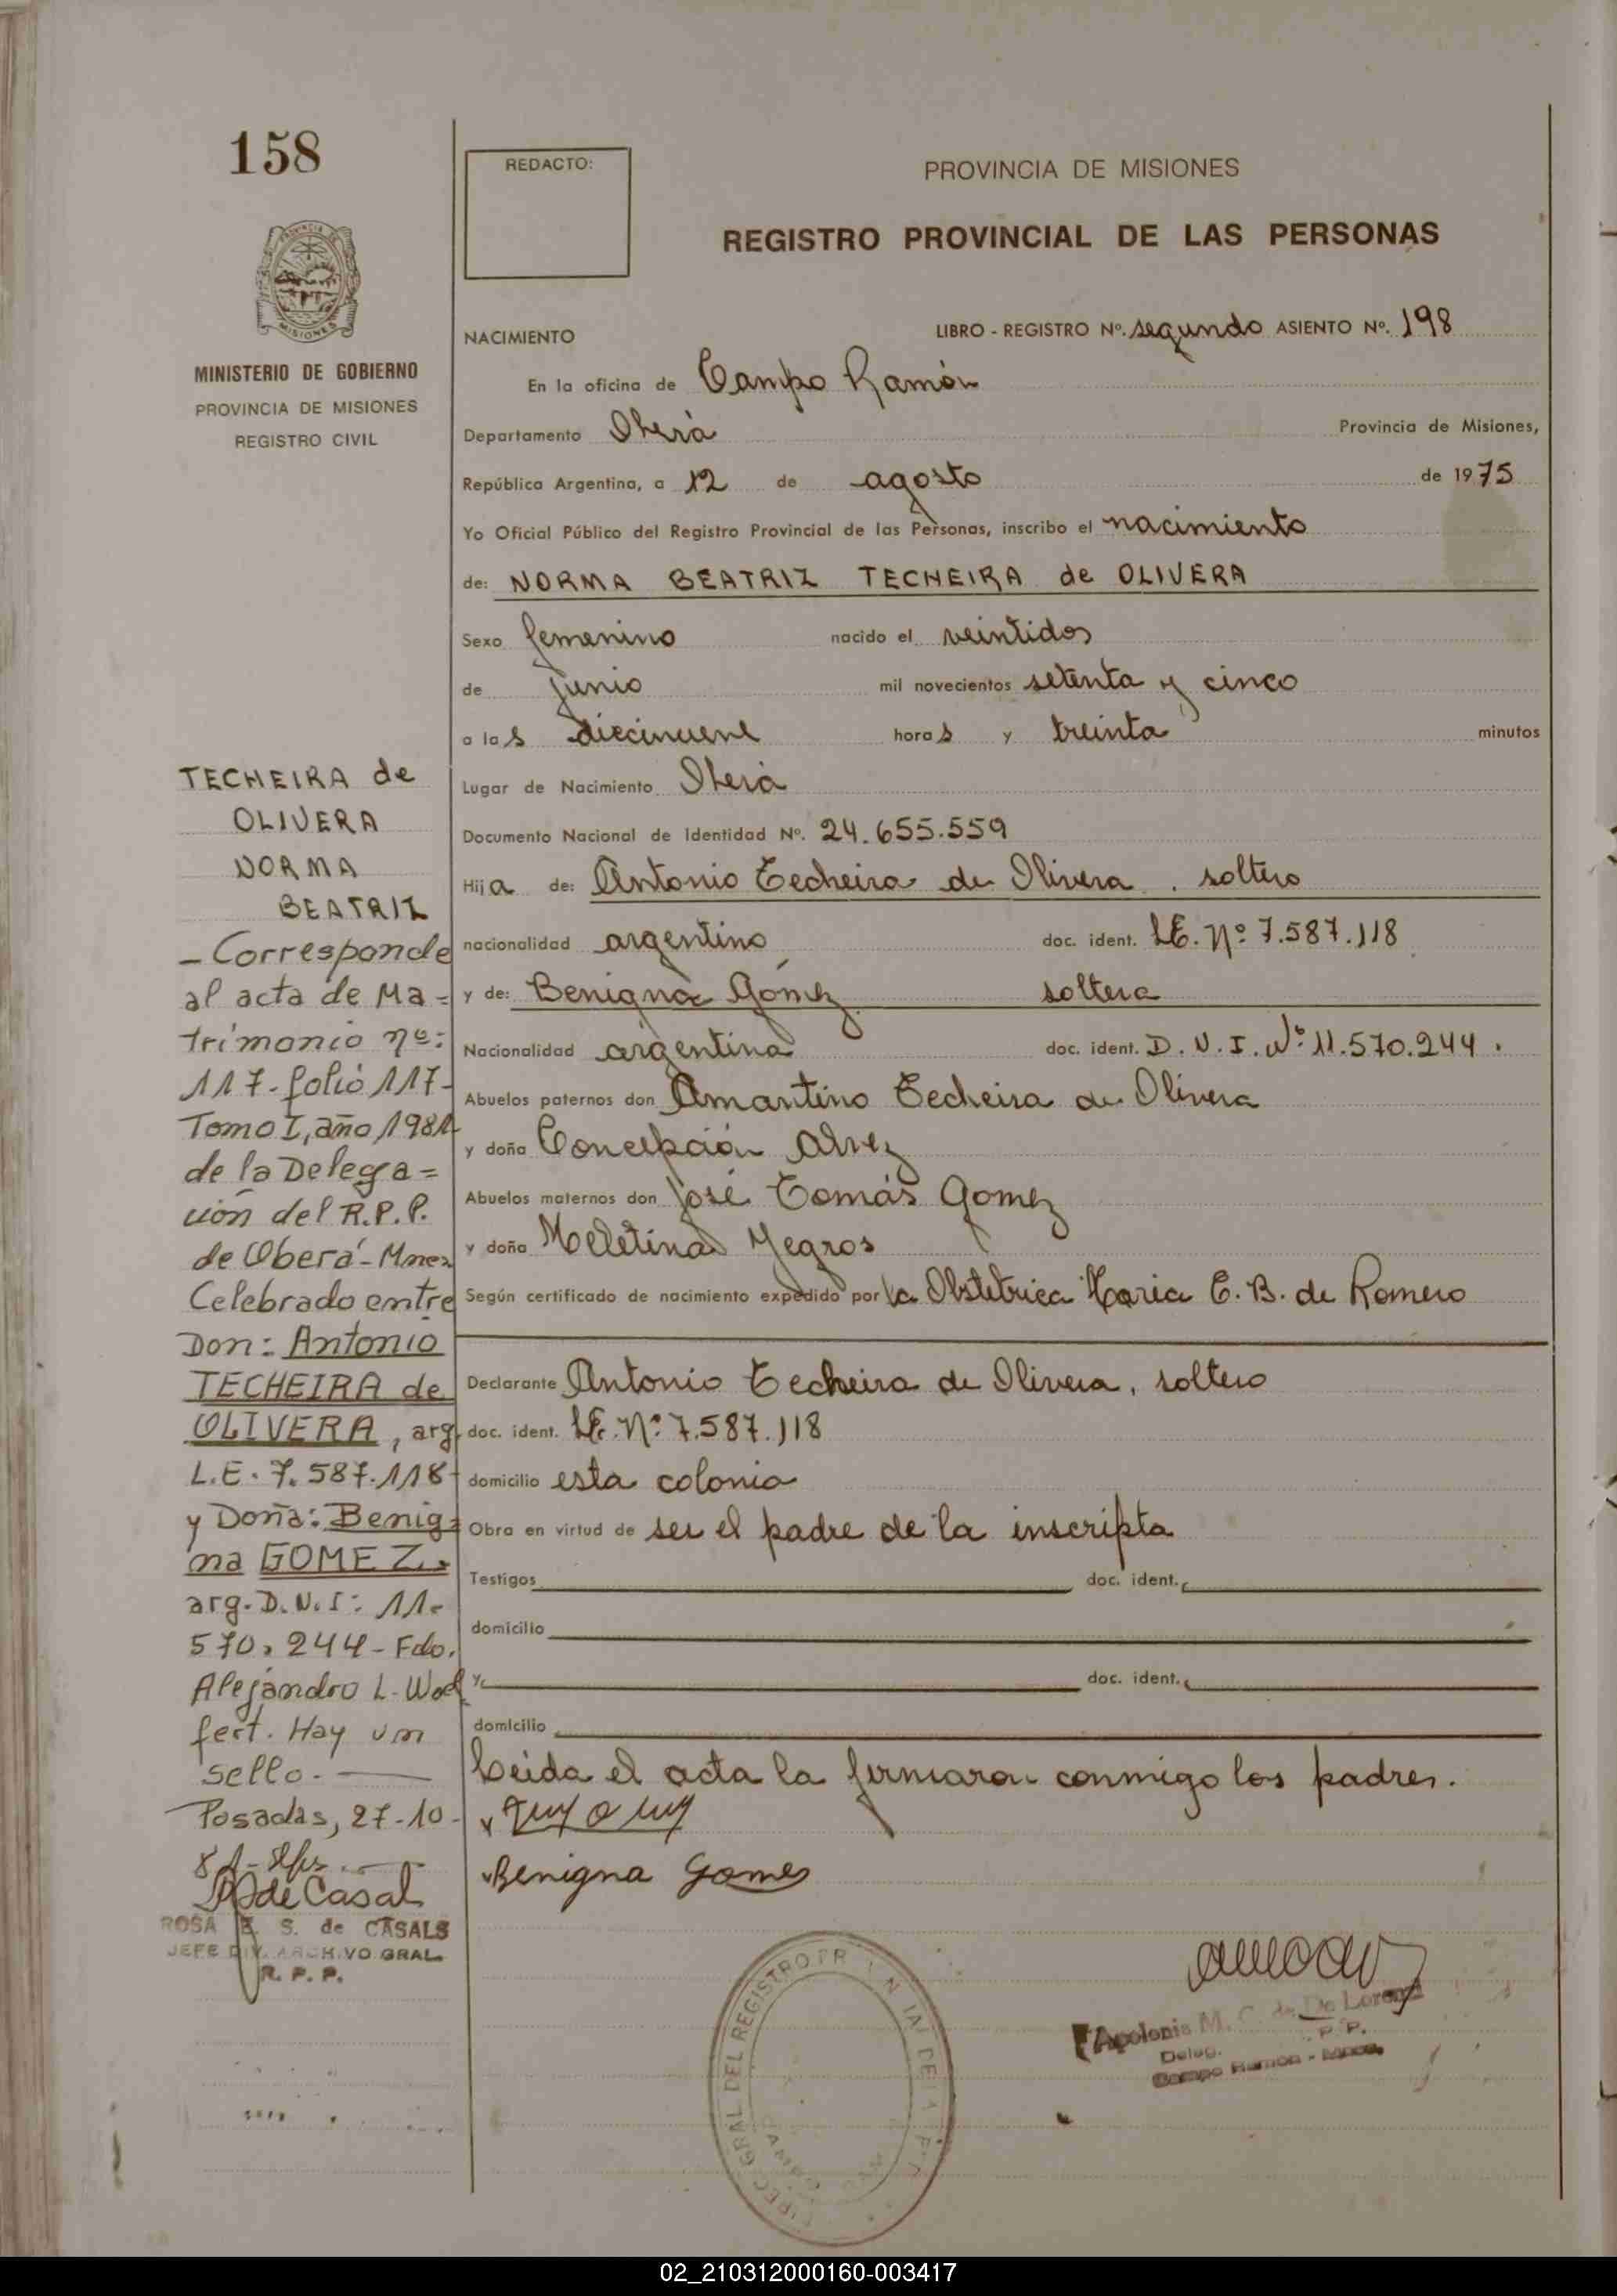 158
REDACTO:
PROVINCIA DE MISIONES
REGISTRO PROVINCIAL DE LAS PERSONAS
MISIONES
MINISTERIO DE GOBIERNO
PROVINCIA DE MISIONES
REGISTRO CIVIL
NACIMIENTO
LIBRO - REGISTRO Nº. segundo ASIENTO Nº. 198
En la oficina de Campo Ramón
Departamento Oberá Provincia de Misiones,
República Argentina, a 12 de agosto de 1975
Yo Oficial Público del Registro Provincial de las Personas, inscribo el nacimiento
de: NORMA BEATRIZ TECHEIRA de OLIVERA
Sexo femenino nacido el veintidos
de junio mil novecientos setenta y cinco
a las diecinueve horas y treinta minutos
Lugar de Nacimiento Oberá
Documento Nacional de Identidad Nº. 24.655.559
Hija de: Antonio Techeira de Olivera . soltero
nacionalidad argentino doc. ident. L.E. Nº 7.587.118
y de: Benigna Gómez soltera
Nacionalidad argentina doc. ident. D.N.I. Nº 11.570.244.
Abuelos paternos don Amantino Techeira de Olivera
y doña Concepción Alvez
Abuelos maternos don José Tomás Gomez
y doña Meletina Yegros
Según certificado de nacimiento expedido por la Obstetrica Maria E. B. de Romero
Declarante Antonio Techeira de Olivera, soltero
doc. ident. L.E. Nº 7.587.118
domicilio esta colonia
Obra en virtud de ser el padre de la inscripta
Testigos doc. ident.
domicilio
y doc. ident.
domicilio
Leida el acta la firmaron conmigo los padres.
Benigna Gomes
TECHEIRA de
OLIVERA
NORMA
BEATRIZ
- Corresponde
al acta de Ma=
trimonio nº:
117-folio 117-
Tomo I, año 1981
de la Delega=
ción del R.P.P.
de Oberá-Mnes
Celebrado entre
Don: Antonio
TECHEIRA de
OLIVERA, arg.
L.E. 7.587.118-
y Doña: Benig=
na GOMEZ.
arg. D.N.I: 11.
570.244-Fdo.
Alejandro L. Wol
fert. Hay un
sello.
Posadas, 27-10-
81-
de Casal
ROSA E. S. de CASALS
JEFE DIV. ARCHIVO GRAL.
R. P. P.
Apolonia M. C. de De Lorenzi
Deleg. P. P.
Campo Ramon - Mnes.
DIREC GRAL DEL REGISTRO
02_210312000160-003417